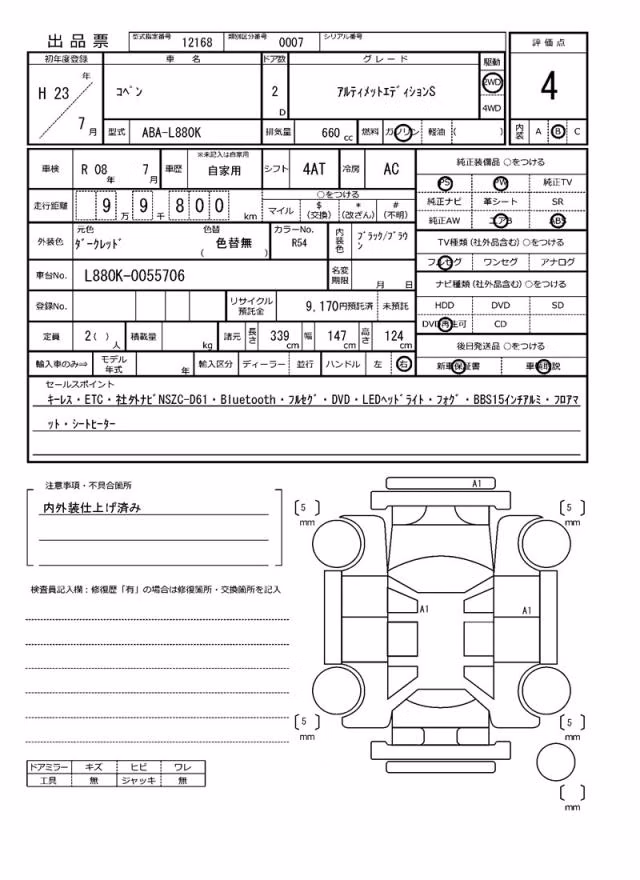 出品票 型式指定番号 12168 類別区分番号 0007 シリアル番号
評価点
初年度登録 車名 ドア数 グレード 駆動
H 23 年 7 月 コペン 2 D アルティメットエディションS 2WD 4WD
4
型式 ABA-L880K 排気量 660 cc 燃料 ガソリン 軽油 ( )
内装 A B C
車検 R 08 年 7 月 車歴 ※未記入は自家用 自家用 シフト 4AT 冷房 AC
純正装備品 ○をつける
PS PW 純正TV
純正ナビ 革シート SR
純正AW エアB ABS
走行距離 9 万 9 千 8 0 0 km
○をつける
マイル $ (交換) * (改ざん) # (不明)
外装色 元色 ダークレッド 色替 ( 色替無 ) カラーNo. R54 内装色 ブラック/ブラウン
TV種類 (社外品含む) ○をつける
フルセグ ワンセグ アナログ
車台No. L880K-0055706 名変期限 月 日
ナビ種類 (社外品含む) ○をつける
HDD DVD SD
DVD再生可 CD
登録No. リサイクル預託金 9,170円預託済 未預託
定員 2( ) 人 積載量 kg 諸元 長さ 339 cm 幅 147 cm 高さ 124 cm
後日発送品 ○をつける
新車保証書 車輌取説
輸入車のみ⇒ モデル年式 年 輸入区分 ディーラー 並行 ハンドル 左 右
セールスポイント
キーレス・ETC・社外ナビNSZC-D61・Bluetooth・フルセグ・DVD・LEDヘッドライト・フォグ・BBS15インチアルミ・フロアマ
ット・シートヒーター
注意事項・不具合箇所
内外装仕上げ済み
検査員記入欄：修復歴「有」の場合は修復箇所・交換箇所を記入
A1
5 mm
5 mm
A1
A1
5 mm
5 mm
mm
ドアミラー キズ ヒビ ワレ
工具 無 ジャッキ 無